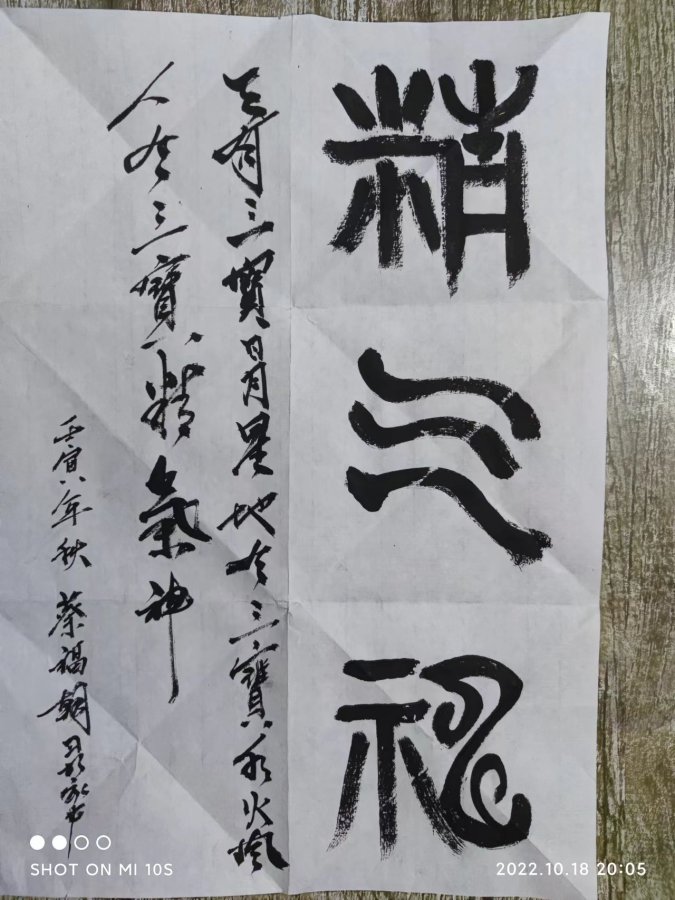 精气神
天有三寶日月星地有三寶水火風
人有三寶精氣神
壬寅年秋 蔡福朝
SHOT ON MI 10S
2022.10.18 20:05